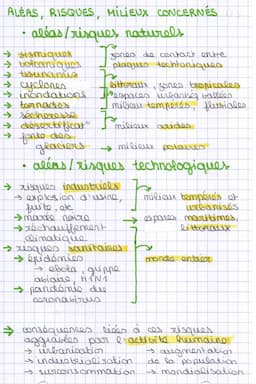 ALÉAS, RISQUES, MILIEUX CONCERNÉS
• aléas/risques naturels
→ sismiques
→ volcaniques
zones de contact entre
plaques tectoniques
→ tsunamis
→ cyclones
littoraux, zones tropicales
→ inondations
espaces urbains, vallées
→ tornades
milieu tempérés, fluviales
→ sécheresse
→ désertificat°
milieux arides
→ fonte des
glaciers → milieux polaires
• aléas/risques technologiques
→ risques industriels
→ explosion d'usine,
fuite, etc
milieux tempérés et
urbanisés
→ marée noire → espaces maritimes,
littoraux
→ réchauffement
climatique
→ risques sanitaires
→ épidémies
monde entier
→ ebola, grippe
aviaire, H1N1
→ pandémie du
coronavirus
→ conséquences liées à ces risques
aggravées par l'activité humaine
→ urbanisation → augmentation
→ industrialisation de la population
→ surconsommation → mondialisation